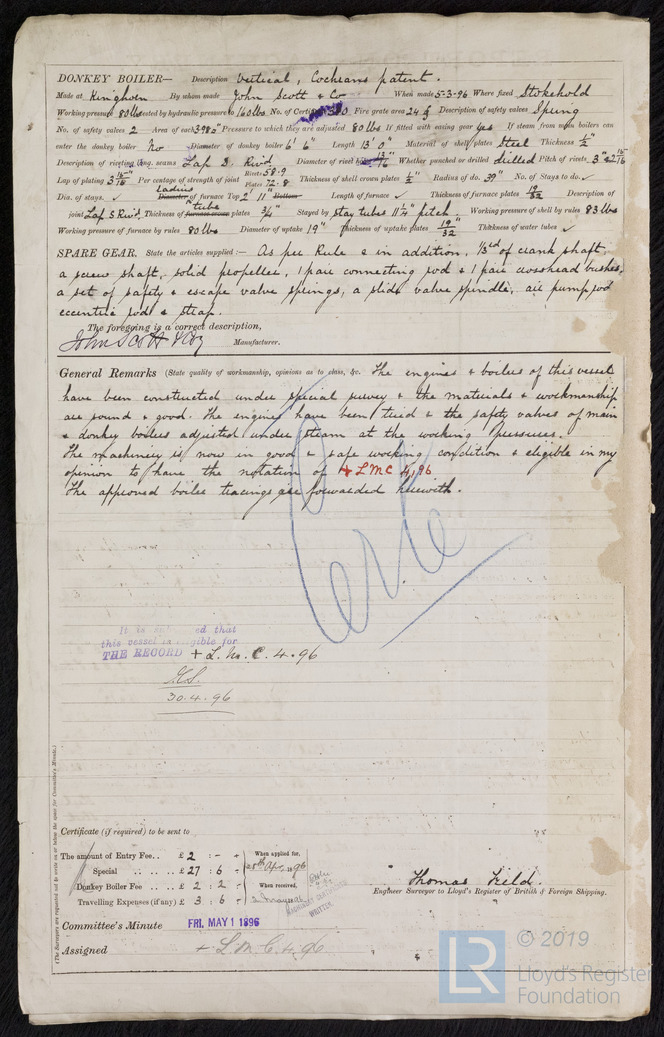 DONKEY BOILER— Description Vertical, Cochrans patent.
Made at Kinghorn By whom made John Scott & Co When made 5-3-96 Where fixed Stokehold
Working pressure 80 lbs tested by hydraulic pressure to 160 lbs No. of Certificate Fire grate area 24 Description of safety valves Spring
No. of safety valves 2 Area of each 3.982" Pressure to which they are adjusted 80 lbs If fitted with easing gear yes If steam from main boilers can
enter the donkey boiler No Diameter of donkey boiler 6' 6" Length 13' 0" Material of shell plates Steel Thickness 1/2"
Description of riveting long. seams Lap D. Rivd. Diameter of rivet holes 13/16" Whether punched or drilled drilled Pitch of rivets 3"
Lap of plating 3 Per centage of strength of joint Rivets 58.9 Plates 72.8 Thickness of shell crown plates 1/2" Radius of do. 39" No. of Stays to do. ✓
Dia. of stays. ✓ Radius Diameter of furnace Top 2' 11" Bottom Length of furnace ✓ Thickness of furnace plates 19/32 Description of
joint Lap S Rivd. Thickness of tube furnace crown plates 3/4" Stayed by stay tubes 11 1/4" pitch. Working pressure of shell by rules 83 lbs
Working pressure of furnace by rules 80 lbs Diameter of uptake 19" Thickness of uptake plates 19/32 Thickness of water tubes ✓
SPARE GEAR. State the articles supplied:— As per Rule & in addition, 1/3rd of crank shaft,
a screw shaft, solid propeller, 1 pair connecting rod & 1 pair crosshead bushes,
a set of safety & escape valve springs, a slide valve spindle, air pump rod
eccentric rod & strap.
The foregoing is a correct description,
John Scott & Coy Manufacturer.
General Remarks (State quality of workmanship, opinions as to class, &c. The engines & boilers of this vessel
have been constructed under special survey & the materials & workmanship
are sound & good. The engines have been tried & the safety valves of main
& donkey boilers adjusted under steam at the working pressures.
The machinery is now in good & safe working condition & eligible in my
opinion to have the notation of + LMC 4,96
The approved boiler tracings are forwarded herewith.
It is submitted that
this vessel is eligible for
THE RECORD + L.M.C. 4.96
30.4.96
Certificate (if required) to be sent to
The amount of Entry Fee.. £ 2 : - : -
Special .. .. .. £ 27 : 6 : -
Donkey Boiler Fee .. .. £ 2 : 2 : -
Travelling Expenses (if any) £ 3 : 6 : -
When applied for,
28th Apr, 1896
When received,
Thomas Field.
Engineer Surveyor to Lloyd's Register of British & Foreign Shipping.
Committee's Minute FRI. MAY 1 1896
Assigned + L.M.C. 4.96
LR © 2019
Lloyd's Register
Foundation